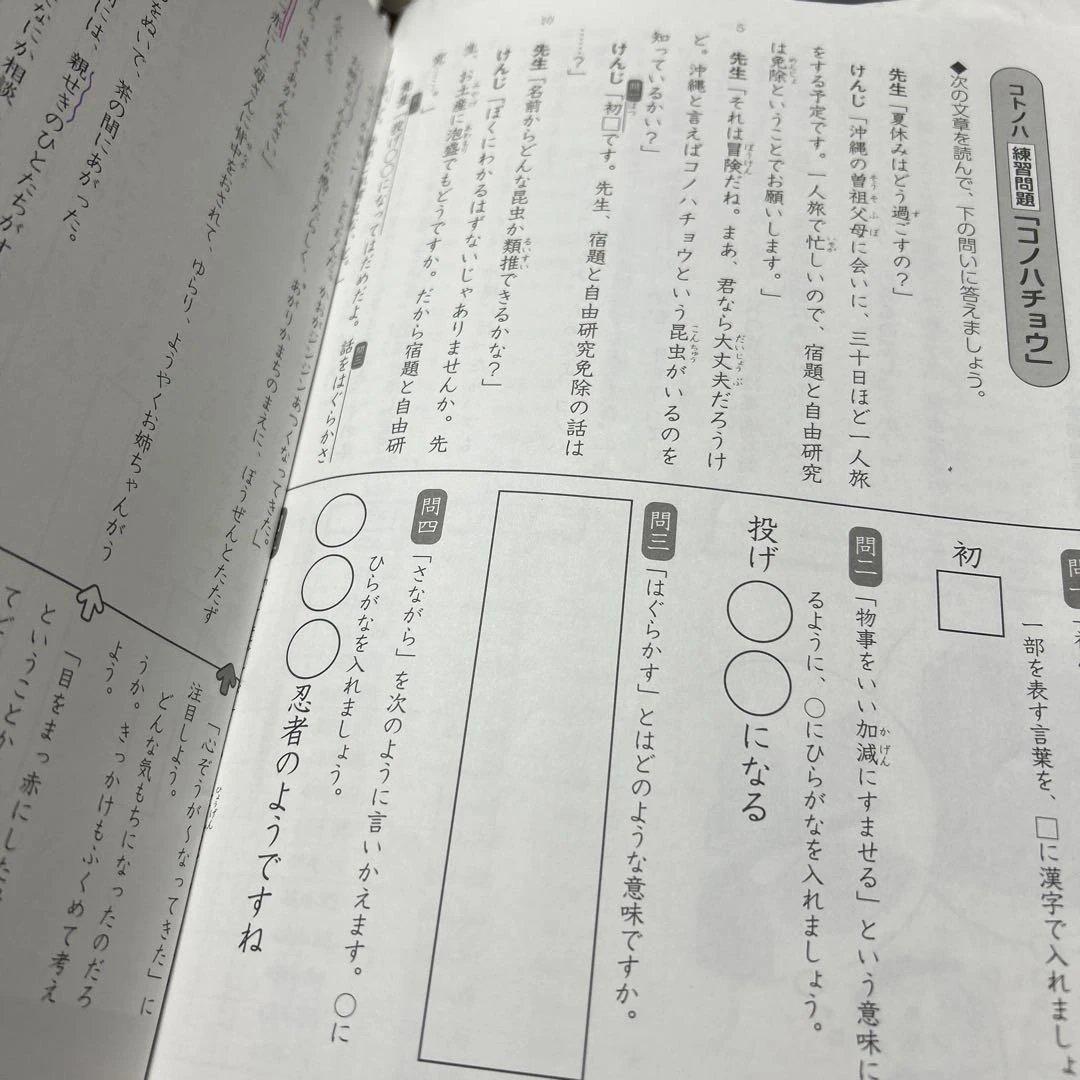 コトノハ 練習問題 「コノハチョウ」
◆次の文章を読んで、下の問いに答えましょう。
先生「夏休みはどう過ごすの？」
けんじ「沖縄の曽祖父母に会いに、三十日ほど一人旅
をする予定です。一人旅で忙しいので、宿題と自由研究
は免除ということでお願いします。」
先生「それは冒険だね。まあ、君なら大丈夫だろうけ
ど。沖縄と言えばコノハチョウという昆虫がいるのを
知っているかい？」
けんじ「初□です。先生、宿題と自由研究免除の話は
……？」
先生「名前からどんな昆虫か類推できるかな？」
けんじ「ぼくにわかるはずないじゃありませんか。先
生、お土産に泡盛でもどうですか。だから宿題と自由研
究…。」
先生「投げ○○になってはだめだよ。話をはぐらかさ
5
10
問一
一部を表す言葉を、□に漢字で入れましょ
初□
問二
「物事をいい加減にすませる」という意味に
るように、○にひらがなを入れましょう。
投げ○○になる
問三
「はぐらかす」とはどのような意味ですか。
問四
「さながら」を次のように言いかえます。○に
ひらがなを入れましょう。
○○○忍者のようですね
をぬいて、茶の間にあがった。
には、親せきのひとたちがす
なにか相談
おされて、ゆらり、ようやくお姉ちゃんがう
あがりかまちのまえに、ぼうぜんとたたず
あつくなってきた。
「心ぞうが～なってきた」に
注目しよう。
どんな気もちになったのだろ
うか。きっかけもふくめて考え
よう。
「目をまっ赤にした
ということか